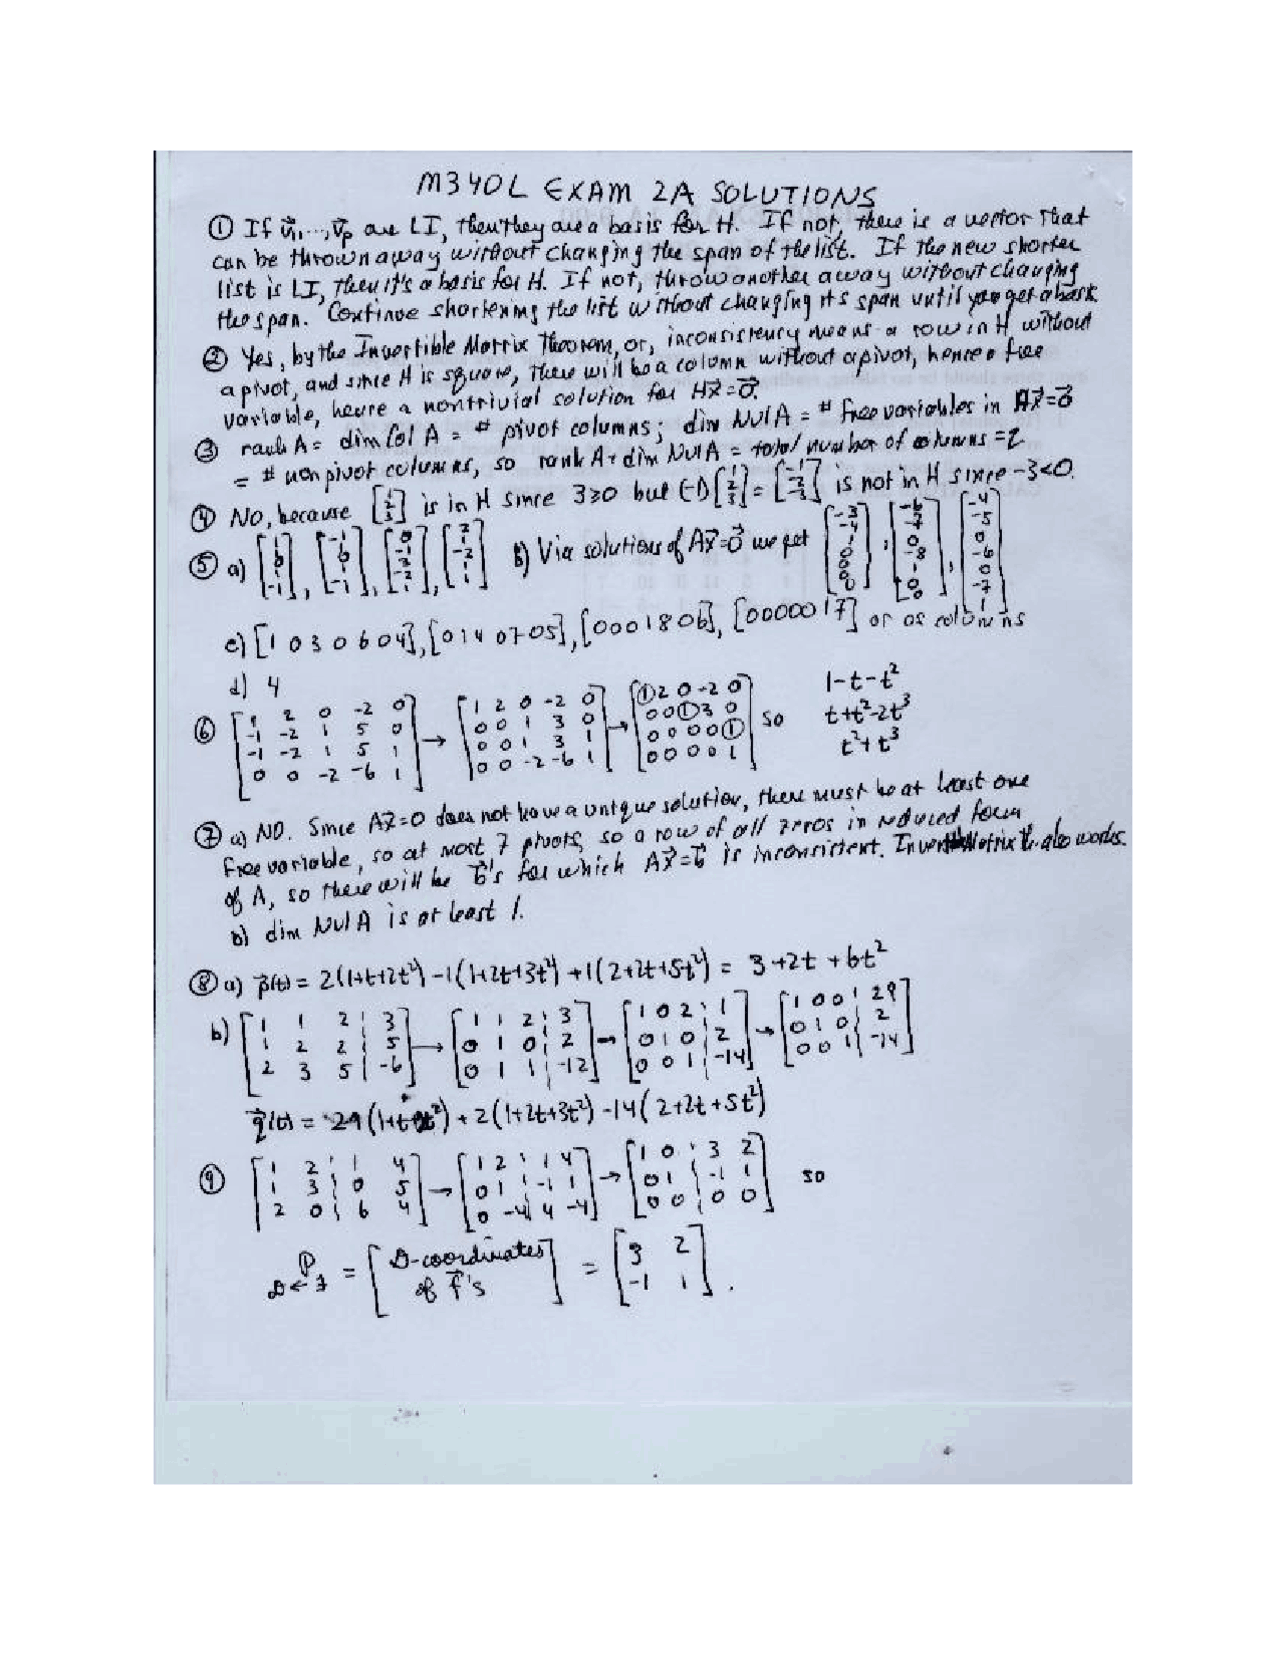 M340L EXAM 2A SOLUTIONS
① If v⃗₁,…,v⃗p are LI, then they are a basis for H. If not, there is a vector that
can be thrown away without changing the span of the list. If the new shorter
list is LI, then it's a basis for H. If not, throw another away without changing
the span. Continue shortening the list without changing its span until you get a basis.
② Yes, by the Invertible Matrix Theorem, or, inconsistency means a row in H without
a pivot, and since H is square, there will be a column without a pivot, hence a free
variable, hence a nontrivial solution for Hx⃗=0⃗.
③ rank A = dim Col A = # pivot columns; dim Nul A = # free variables in Ax⃗=0⃗
= # non pivot columns, so rank A + dim Nul A = total number of columns = 7
④ No, because [1 2 3] is in H since 3≥0 but (-1)[1 2 3]=[-1 -2 -3] is not in H since -3<0.
⑤ a) [1 0 1 -1], [-1 1 0 -1], [0 -1 3 -2 1], [2 1 -2 1 1] b) Via solutions of Ax⃗=0⃗ we get [-3 -4 1 0 0 0 0], [-6 -7 0 -8 1 0 0], [-4 -5 0 -6 0 -7 1]
c) [1 0 3 0 6 0 4], [0 1 4 0 7 0 5], [0 0 0 1 8 0 6], [0 0 0 0 0 1 7] or as columns
d) 4
⑥ [1 2 0 -2 0; -1 -2 1 5 0; -1 -2 1 5 1; 0 0 -2 -6 1] → [1 2 0 -2 0; 0 0 1 3 0; 0 0 1 3 1; 0 0 -2 -6 1] → [① 2 0 -2 0; 0 0 ① 3 0; 0 0 0 0 ①; 0 0 0 0 1] so 1-t-t² t+t²-2t³ t²+t³
⑦ a) NO. Since Ax⃗=0 does not have a unique solution, there must be at least one
free variable, so at most 7 pivots, so a row of all zeros in reduced form
of A, so there will be b⃗'s for which Ax⃗=b⃗ is inconsistent. Invert Matrix Th also works.
b) dim Nul A is at least 1.
⑧ a) p⃗(t) = 2(1+t+2t²) -1(1+2t+3t²) +1(2+2t+5t²) = 3+2t+6t²
b) [1 1 2 | 3; 1 2 2 | 5; 2 3 5 | -6] → [1 1 2 | 3; 0 1 0 | 2; 0 1 1 | -12] → [1 0 2 | 1; 0 1 0 | 2; 0 0 1 | -14] → [1 0 0 | 29; 0 1 0 | 2; 0 0 1 | -14]
q⃗(t) = 29(1+t+2t²) + 2(1+2t+3t²) -14(2+2t+5t²)
⑨ [1 2 | 1 4; 1 3 | 0 5; 2 0 | 6 4] → [1 2 | 1 4; 0 1 | -1 1; 0 -4 | 4 -4] → [1 0 | 3 2; 0 1 | -1 1; 0 0 | 0 0] so
P D←F = [D-coordinates of f⃗'s] = [3 2; -1 1].